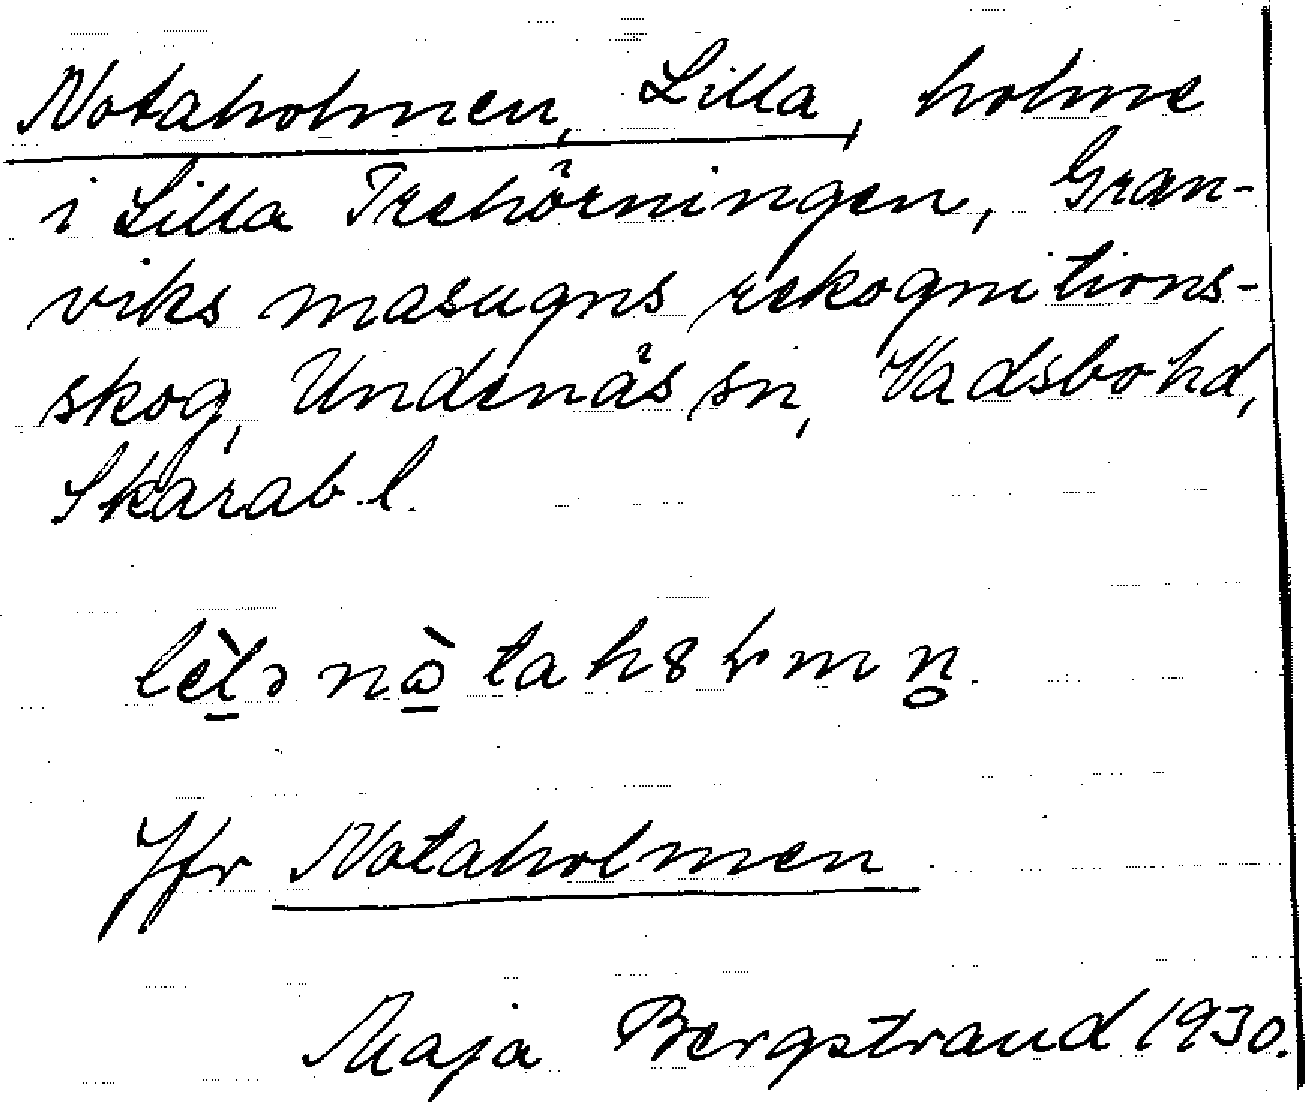 Notaholmen, Lilla, holme
i Lilla Trehörningen, Gran-
viks masugns rekognitions-
skog, Undenäs sn, Vadsbo hd,
Skarab. l.
Jfr Notaholmen
Maja Bergstrand 1930.